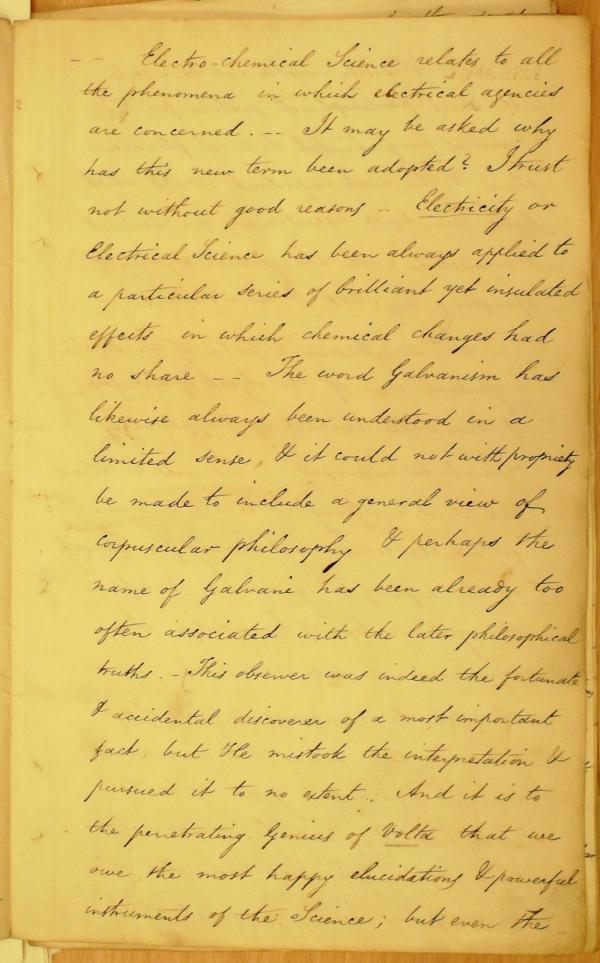 -- Electro-chemical Science relates to all
the phenomena in which electrical agencies
are concerned. -- It may be asked why
has this new term been adopted? I trust
not without good reasons - Electricity or
Electrical Science has been always applied to
a particular series of brilliant yet insulated
effects in which chemical changes had
no share -- The word Galvanism has
likewise always been understood in a
limited sense, & it could not with propriety
be made to include a general view of
corpuscular philosophy & perhaps the
name of Galvani has been already too
often associated with the later philosophical
truths. - This observer was indeed the fortunate
& accidental discoverer of a most important
fact, but He mistook the interpretation &
pursued it to no extent; And it is to
the penetrating Genius of Volta that we
owe the most happy elucidations & powerful
instruments of the Science; but even the